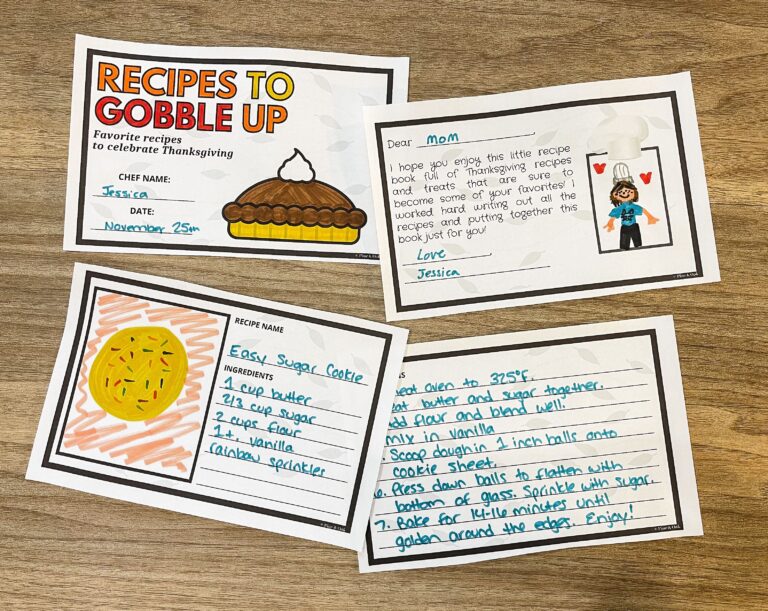 RECIPES TO
GOBBLE UP
Favorite recipes
to celebrate Thanksgiving
CHEF NAME:
Jessica
DATE:
November 25th
Dear Mom
I hope you enjoy this little recipe
book full of Thanksgiving recipes
and treats that are sure to
become some of your favorites! I
worked hard writing out all the
recipes and putting together this
book just for you!
Love
Jessica
RECIPE NAME
Easy Sugar Cookie
INGREDIENTS
1 cup butter
2/3 cup sugar
2 cups flour
1 t. vanilla
rainbow sprinkles
oven to 325°F.
butter and sugar together.
flour and blend well.
mix in vanilla
Scoop dough in 1 inch balls onto
cookie sheet.
6. Press down balls to flatten with
bottom of glass. Sprinkle with sugar.
7. Bake for 14-16 minutes until
golden around the edges. Enjoy!